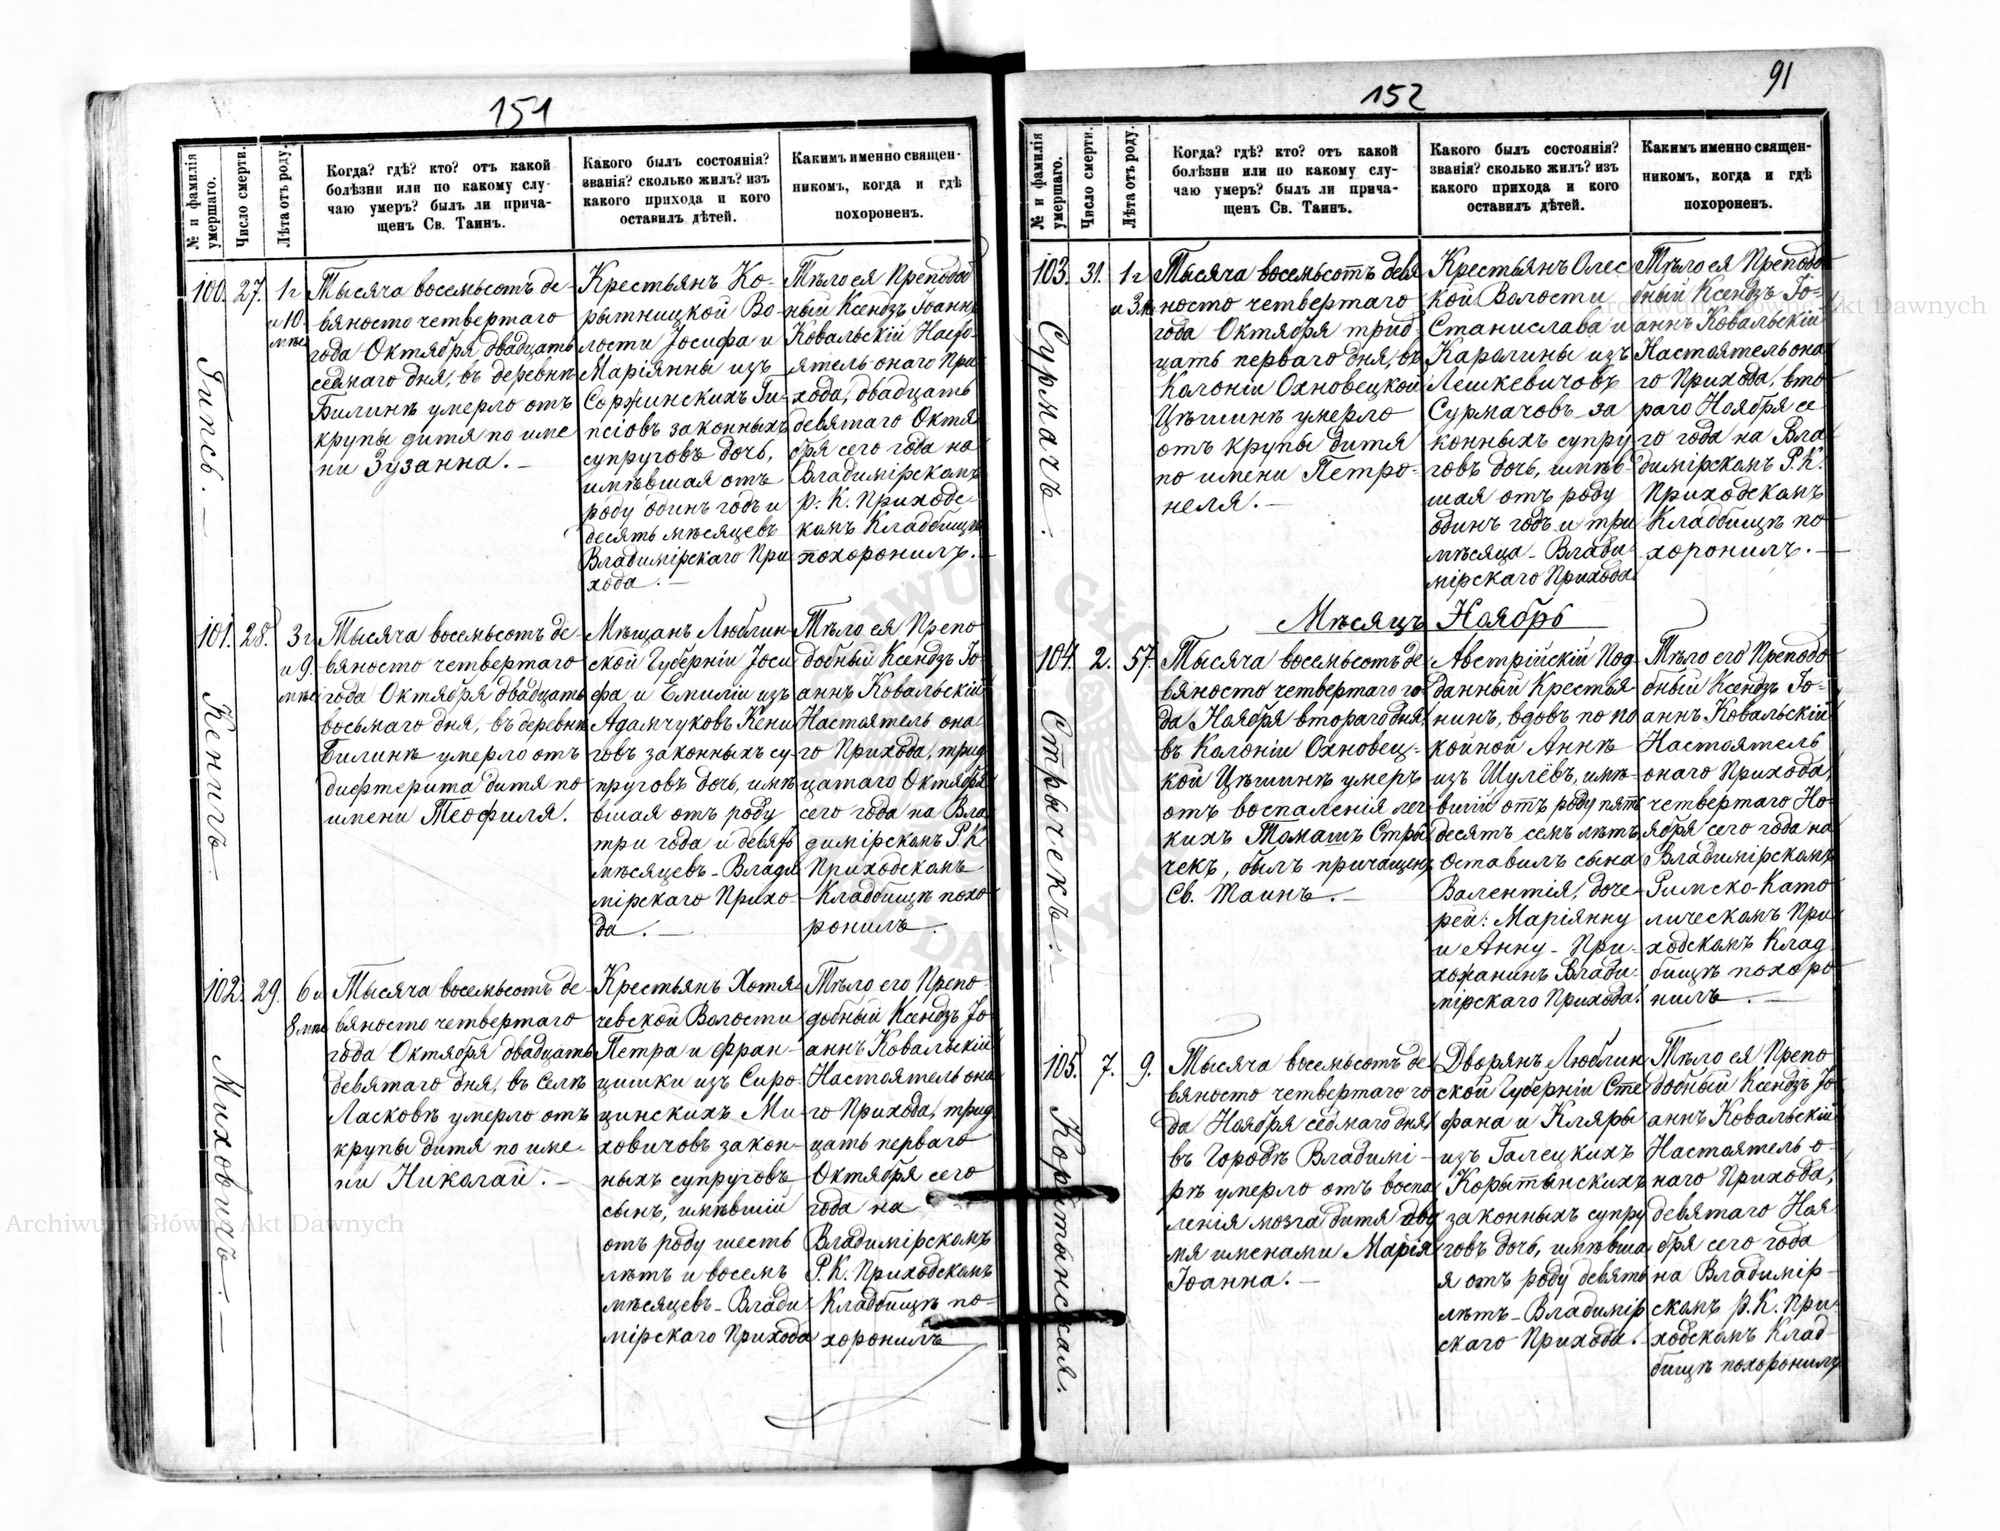 151
№ и фамилія умершаго.
Число смерти.
Лѣта отъ роду.
Когда? гдѣ? кто? отъ какой
болѣзни или по какому слу-
чаю умеръ? былъ ли прича-
щенъ Св. Таинъ.
Какого былъ состоянія?
званія? сколько жилъ? изъ
какого прихода и кого
оставилъ дѣтей.
Какимъ именно священ-
никомъ, когда и гдѣ
похороненъ.
100.
Гипсъ. —
27.
1 г
и 10
мѣс
Тысяча восемьсотъ де-
вяносто четвертаго
года Октября двадцать
седмаго дня, въ деревнѣ
Билинѣ умерло отъ
крупы дитя по име
ни Зузанна. —
Крестьянъ Ко-
рытницкой Во-
лости Іосифа и
Маріянны изъ
Соржинскихъ Ги-
псіовъ законныхъ
супруговъ дочь,
имѣвшая отъ
роду одинъ годъ и
десять мѣсяцевъ
Владимірскаго При
хода. —
Тѣло ея Преподоб
ный Ксендзъ Іоаннъ
Ковальскій Насто-
ятель онаго При
хода, двадцать
девятаго Октя
бря сего года на
Владимірскомъ
Р. К. Приходс-
комъ Кладбищѣ
похоронилъ. —
101.
Кенигъ. —
28.
3 г
и 9.
мѣс
Тысяча восемьсотъ де
вяносто четвертаго
года Октября двадцать
восьмаго дня, въ деревнѣ
Билинѣ умерло отъ
дифтерита дитя по
имени Теофиля.
Мѣщанъ Люблин-
ской Губерніи Іоси
фа и Емиліи изъ
Адамчуковъ Кени
говъ законныхъ су-
пруговъ дочь, имѣ
вшая отъ роду
три года и девять
мѣсяцевъ – Влади
мірскаго Прихо-
да. —
Тѣло ея Препо
добный Ксендзъ Іо
аннъ Ковальскій
Настоятель она
го Прихода, трид
цатаго Октября
сего года на Вла
димірскомъ Р. К
Приходскомъ
Кладбищѣ похо
ронилъ.
102.
Миховичъ. —
29.
6 и
8 мѣс
Тысяча восемьсотъ де-
вяносто четвертаго
года Октября двадцать
девятаго дня, въ селѣ
Ласковѣ умерло отъ
крупы дитя по име-
ни Николай. —
Крестьянъ Хотя
чевской Волости
Петра и Фран-
цишки изъ Сиро
цинскихъ Ми-
ховичовъ закон-
ныхъ супруговъ
сынъ, имѣвшій
отъ роду шесть
лѣтъ и восемъ
мѣсяцевъ – Влади
мірскаго Прихода
Тѣло его Препо-
добный Ксендзъ Іо
аннъ Ковальскій
Настоятель она
го Прихода, трид
цать перваго
Октября сего
года на
Владимірскомъ
Р. К. Приходскомъ
Кладбищѣ по-
хоронилъ
152
91
№ и фамилія умершаго.
Число смерти.
Лѣта отъ роду.
Когда? гдѣ? кто? отъ какой
болѣзни или по какому слу-
чаю умеръ? былъ ли прича-
щенъ Св. Таинъ.
Какого былъ состоянія?
званія? сколько жилъ? изъ
какого прихода и кого
оставилъ дѣтей.
Какимъ именно священ-
никомъ, когда и гдѣ
похороненъ.
103.
Сурмачъ.
31.
1 г
и 3.м
Тысяча восемьсотъ девя
носто четвертаго
года Октября трид
цать перваго дня, въ
Колоніи Охновецкой
Цѣшинѣ умерло
отъ крупы дитя
по имени Петро-
неля. —
Крестьянъ Олес
кой Волости
Станислава и
Каролины изъ
Лешкевичовъ
Сурмачовъ за
конныхъ супру
говъ дочь, имѣв-
шая отъ роду
одинъ годъ и три
мѣсяца – Влади
мірскаго Прихода
Тѣло ея Преподо
бный Ксендзъ Іо-
аннъ Ковальскій
Настоятель она
го Прихода, вто
раго Ноября се
го года на Вла
димірскомъ Р. К.
Приходскомъ
Кладбищѣ по-
хоронилъ. —
Мѣсяцъ Ноябрь
104.
Стрычекъ. —
2.
57.
Тысяча восемьсотъ де
вяносто четвертаго го
да Ноября втораго дня
въ Колоніи Охновец-
кой Цѣшинѣ умеръ
отъ воспаленія лег
кихъ Томашъ Стры
чекъ, былъ причащенъ
Св. Таинъ. —
Австрійскій Под
данный Крестья
нинъ, вдовъ по по
койной Аннѣ
изъ Шулёвъ, имѣ-
вшій отъ роду пять
десятъ семъ лѣтъ
оставилъ сына
Валентія, доче-
рей: Маріянну
и Анну – При-
хожанинъ Влади-
мірскаго Прихода.
Тѣло его Преподо
бный Ксендзъ Іо-
аннъ Ковальскій
Настоятель
онаго Прихода,
четвертаго Но-
ября сего года на
Владимірскомъ
Римско-Като
лическомъ При
ходскомъ Клад
бищѣ похоро
нилъ. —
105.
Корытынская.
7.
9.
Тысяча восемьсотъ де
вяносто четвертаго го
да Ноября седмаго дня
въ Городѣ Владимі-
рѣ умерло отъ воспа
ленія мозга дитя дву
мя именами Марія
Іоанна. —
Дворянъ Люблин
ской Губерніи Сте
фана и Кляры
изъ Галецкихъ
Корытынскихъ
законныхъ супру
говъ дочь, имѣвша
я отъ роду девять
лѣтъ – Владимір
скаго Прихода.
Тѣло ея Препо
добный Ксендзъ Іо
аннъ Ковальскій
Настоятель о-
наго Прихода,
девятаго Ноя
бря сего года
на Владимір-
скомъ Р. К. При-
ходскомъ Клад-
бищѣ похоронилъ
Archiwum Główne Akt Dawnych
Archiwum Główne Akt Dawnych